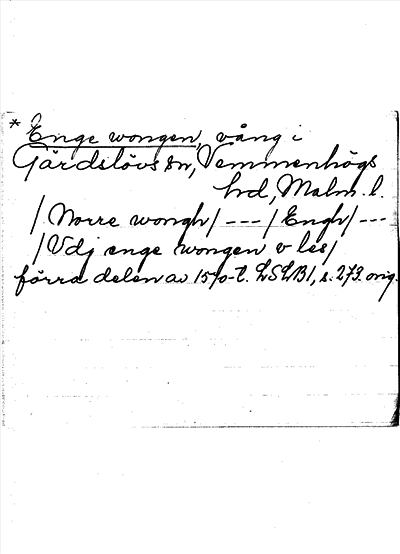 * Enge wongen, vång i
Gärdslövs sn, Vemmenhögs
hrd, Malm. l.
/Norre wongh/ --- /Engh/ ---
/Vdj enge wongen v les/
förra delen av 1570-t. LSLB1, s. 273 orig.